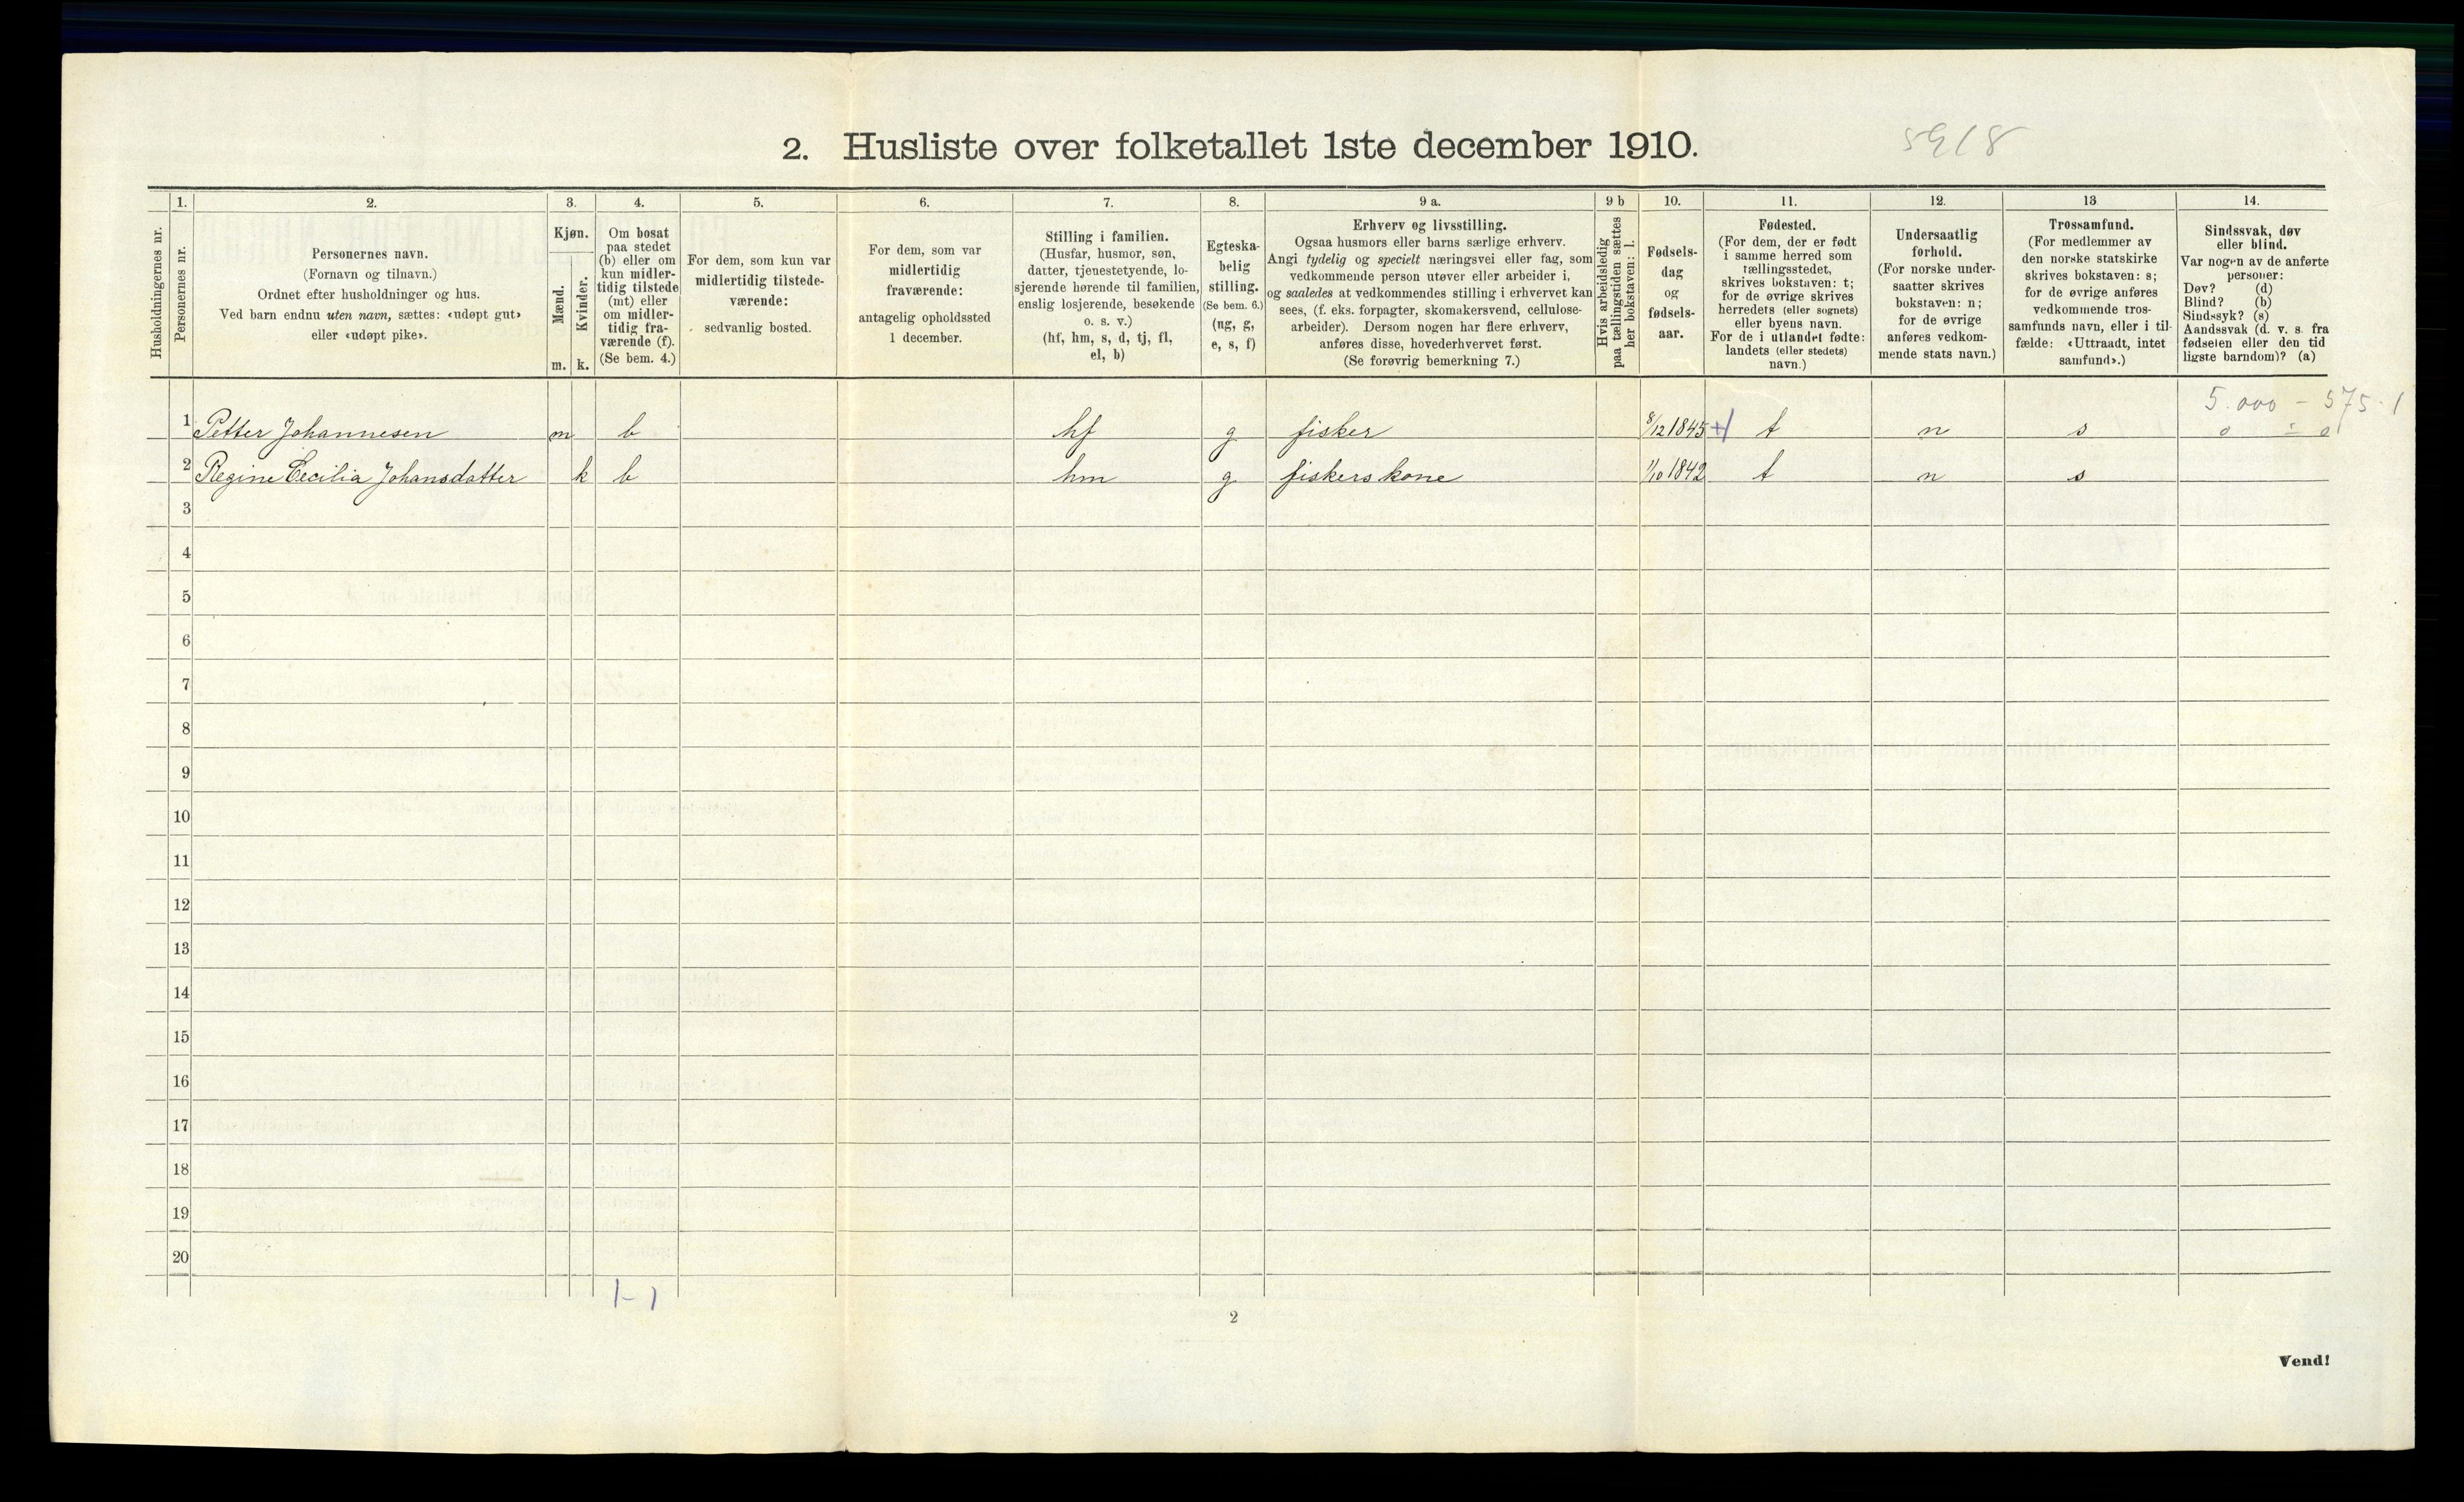 2. Husliste over folketallet 1ste december 1910.
5918
Husholdningernes nr.
1.
Personernes nr.
2.
Personernes navn.
(Fornavn og tilnavn.)
Ordnet efter husholdninger og hus.
Ved barn endnu uten navn, sættes: «udøpt gut»
eller «udøpt pike».
3.
Kjøn.
Mænd.
Kvinder.
m. k.
4.
Om bosat
paa stedet
(b) eller om
kun midler-
tidig tilstede
(mt) eller
om midler-
tidig fra-
værende (f).
(Se bem. 4.)
5.
For dem, som kun var
midlertidig tilstede-
værende:
sedvanlig bosted.
6.
For dem, som var
midlertidig
fraværende:
antagelig opholdssted
1 december.
7.
Stilling i familien.
(Husfar, husmor, søn,
datter, tjenestetyende, lo-
sjerende hørende til familien,
enslig losjerende, besøkende
o. s. v.)
(hf, hm, s, d, tj, fl,
el, b)
8.
Egteska-
belig
stilling.
(Se bem. 6.)
(ug, g,
e, s, f)
9 a.
Erhverv og livsstilling.
Ogsaa husmors eller barns særlige erhverv.
Angi tydelig og specielt næringsvei eller fag, som
vedkommende person utøver eller arbeider i,
og saaledes at vedkommendes stilling i erhvervet kan
sees, (f. eks. forpagter, skomakersvend, cellulose-
arbeider). Dersom nogen har flere erhverv,
anføres disse, hovederhvervet først.
(Se forøvrig bemerkning 7.)
9 b
Hvis arbeidsledig
paa tællingstiden sættes
her bokstaven: l.
10.
Fødsels-
dag
og
fødsels-
aar.
11.
Fødested.
(For dem, der er født
i samme herred som
tællingsstedet,
skrives bokstaven: t;
for de øvrige skrives
herredets (eller sognets)
eller byens navn.
For de i utlandet fødte:
landets (eller stedets)
navn.)
12.
Undersaatlig
forhold.
(For norske under-
saatter skrives
bokstaven: n;
for de øvrige
anføres vedkom-
mende stats navn.)
13
Trossamfund.
(For medlemmer av
den norske statskirke
skrives bokstaven: s;
for de øvrige anføres
vedkommende tros-
samfunds navn, eller i til-
fælde: «Uttraadt, intet
samfund».)
14.
Sindssvak, døv
eller blind.
Var nogen av de anførte
personer:
Døv? (d)
Blind? (b)
Sindssyk? (s)
Aandssvak (d. v. s. fra
fødselen eller den tid
ligste barndom)? (a)
5.000 - 575-1
0 - 0
1 Petter Johannesen m b hf g fisker 8/12 1845 t n s
2 Regine Cecilia Johansdatter k b hm g fiskers kone 1/10 1842 t n s
3
4
5
6
7
8
9
10
11
12
13
14
15
16
17
18
19
20
1-1
2
Vend!